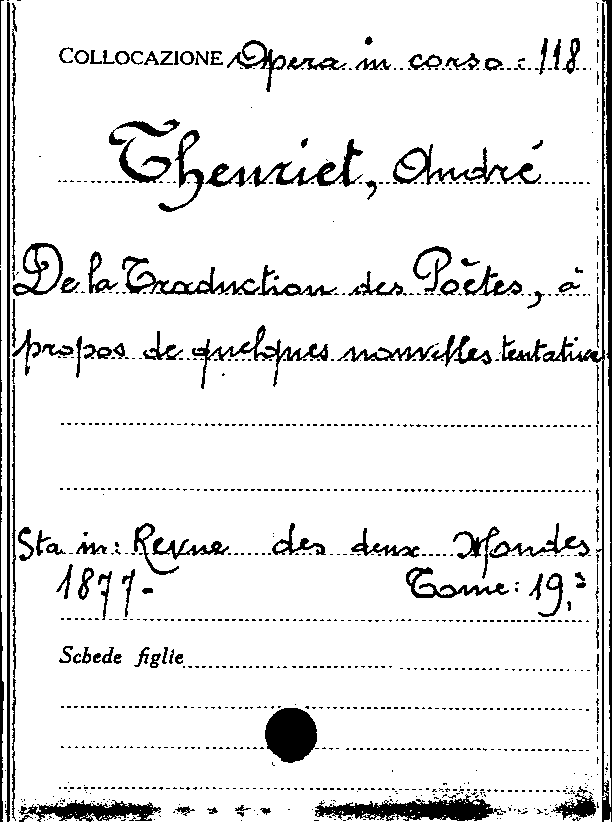 COLLOCAZIONE Opera in corso: 118
Theuriet, André
De la Traduction des Poètes, à
propos de quelques nouvelles tentative
Sta in: Revue des deux Mondes
1877- Tome: 19,
Schede figlie